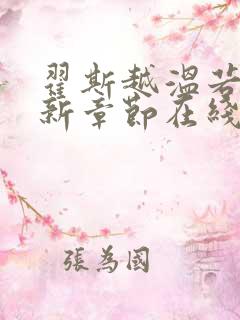 翟斯越溫若
新章節在綫
張為國